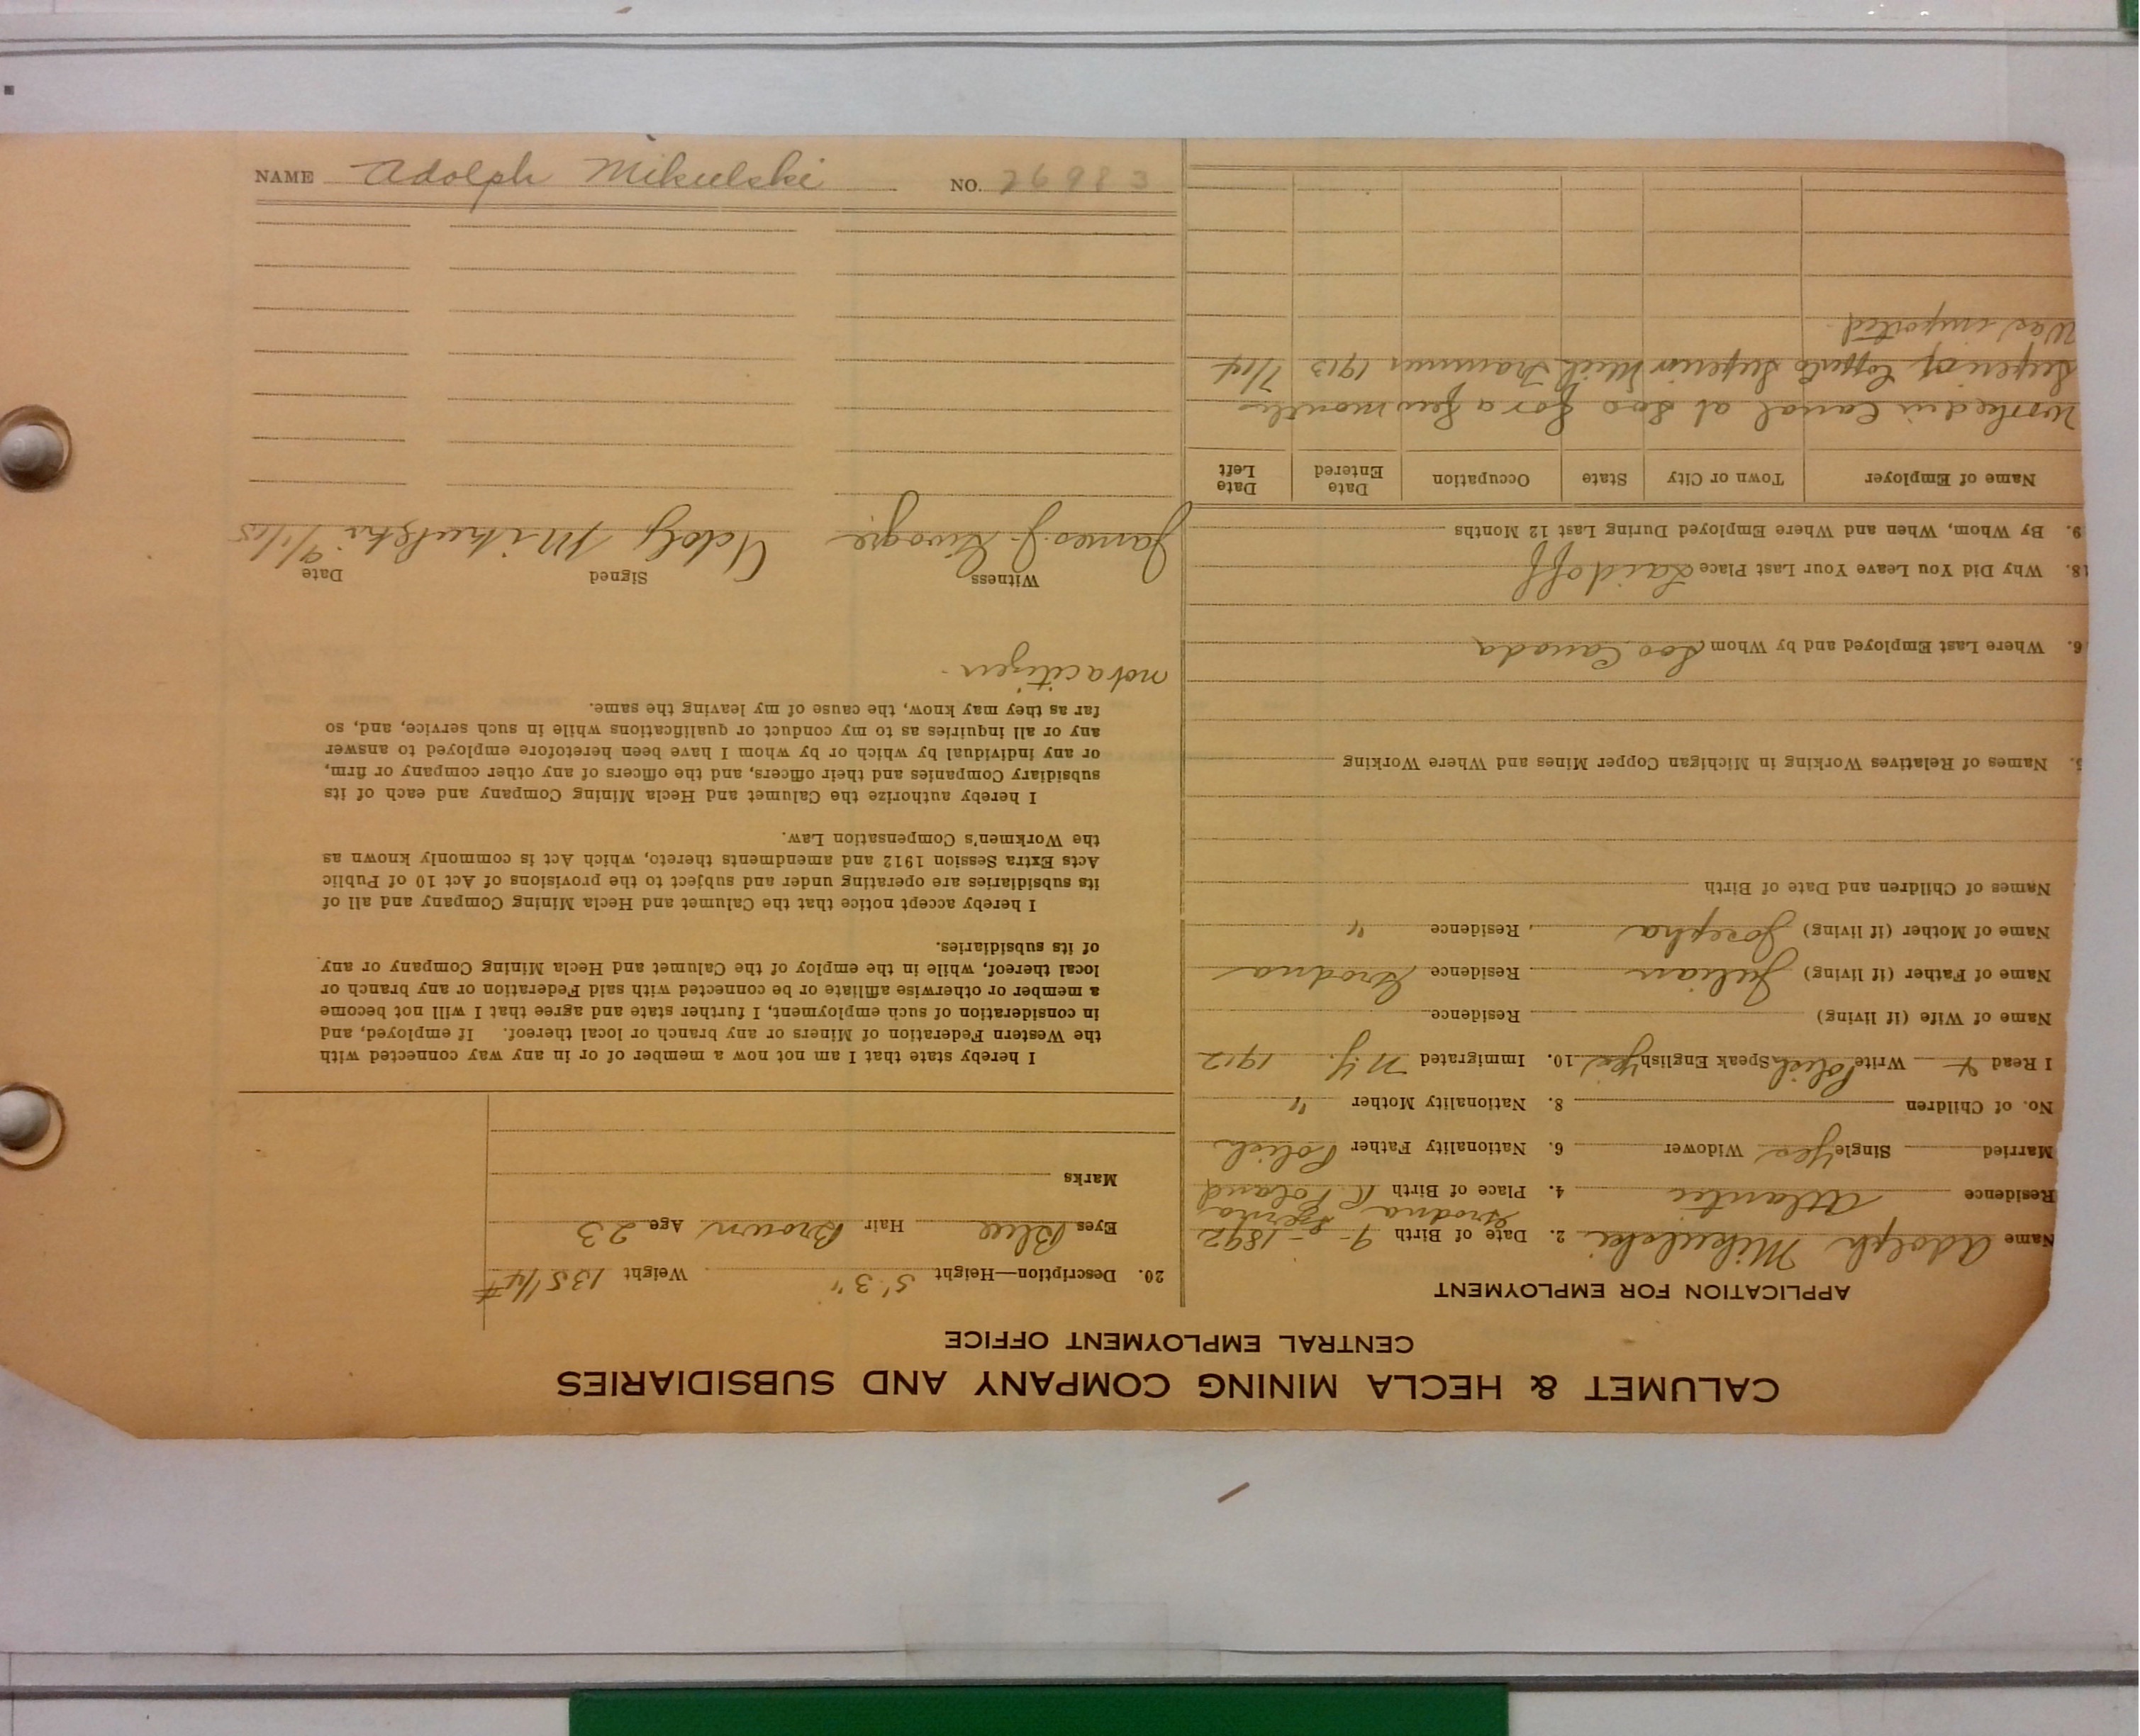 CALUMET & HECLA MINING COMPANY AND SUBSIDIARIES
CENTRAL EMPLOYMENT OFFICE
APPLICATION FOR EMPLOYMENT
Name Adolph Mikulski 2. Date of Birth 9 - - 1892
Residence Atlantic 4. Place of Birth Grodna R. Poland
Married Single Yes Widower 6. Nationality Father Polish
No. of Children 8. Nationality Mother "
I Read & Write Polish Speak English Yes 10. Immigrated N.Y. 1912
Name of Wife (if living) Residence
Name of Father (if living) Julian Residence Grodna
Name of Mother (if living) Josepha , Residence "
Names of Children and Date of Birth
5. Names of Relatives Working in Michigan Copper Mines and Where Working
6. Where Last Employed and by Whom Soo Canada
18. Why Did You Leave Your Last Place Laid off
9. By Whom, When and Where Employed During Last 12 Months
Name of Employer Town or City State Occupation Date Entered Date Left
Worked in Canal at Soo for a few months
Superior Copper Co Superior Mich Trammer 1913 7/14
Was imported
20. Description—Height 5' 3" Weight 135 1/4 #
Eyes Blue Hair Brown Age 23
Marks
I hereby state that I am not now a member of or in any way connected with
the Western Federation of Miners or any branch or local thereof. If employed, and
in consideration of such employment, I further state and agree that I will not become
a member or otherwise affiliate or be connected with said Federation or any branch or
local thereof, while in the employ of the Calumet and Hecla Mining Company or any
of its subsidiaries.
I hereby accept notice that the Calumet and Hecla Mining Company and all of
its subsidiaries are operating under and subject to the provisions of Act 10 of Public
Acts Extra Session 1912 and amendments thereto, which Act is commonly known as
the Workmen's Compensation Law.
I hereby authorize the Calumet and Hecla Mining Company and each of its
subsidiary Companies and their officers, and the officers of any other company or firm,
or any individual by which or by whom I have been heretofore employed to answer
any or all inquiries as to my conduct or qualifications while in such service, and, so
far as they may know, the cause of my leaving the same.
not a citizen
Witness Signed Date
James J. Adoly Mikulski 9/1/15
NAME Adolph Mikulski NO. 26983